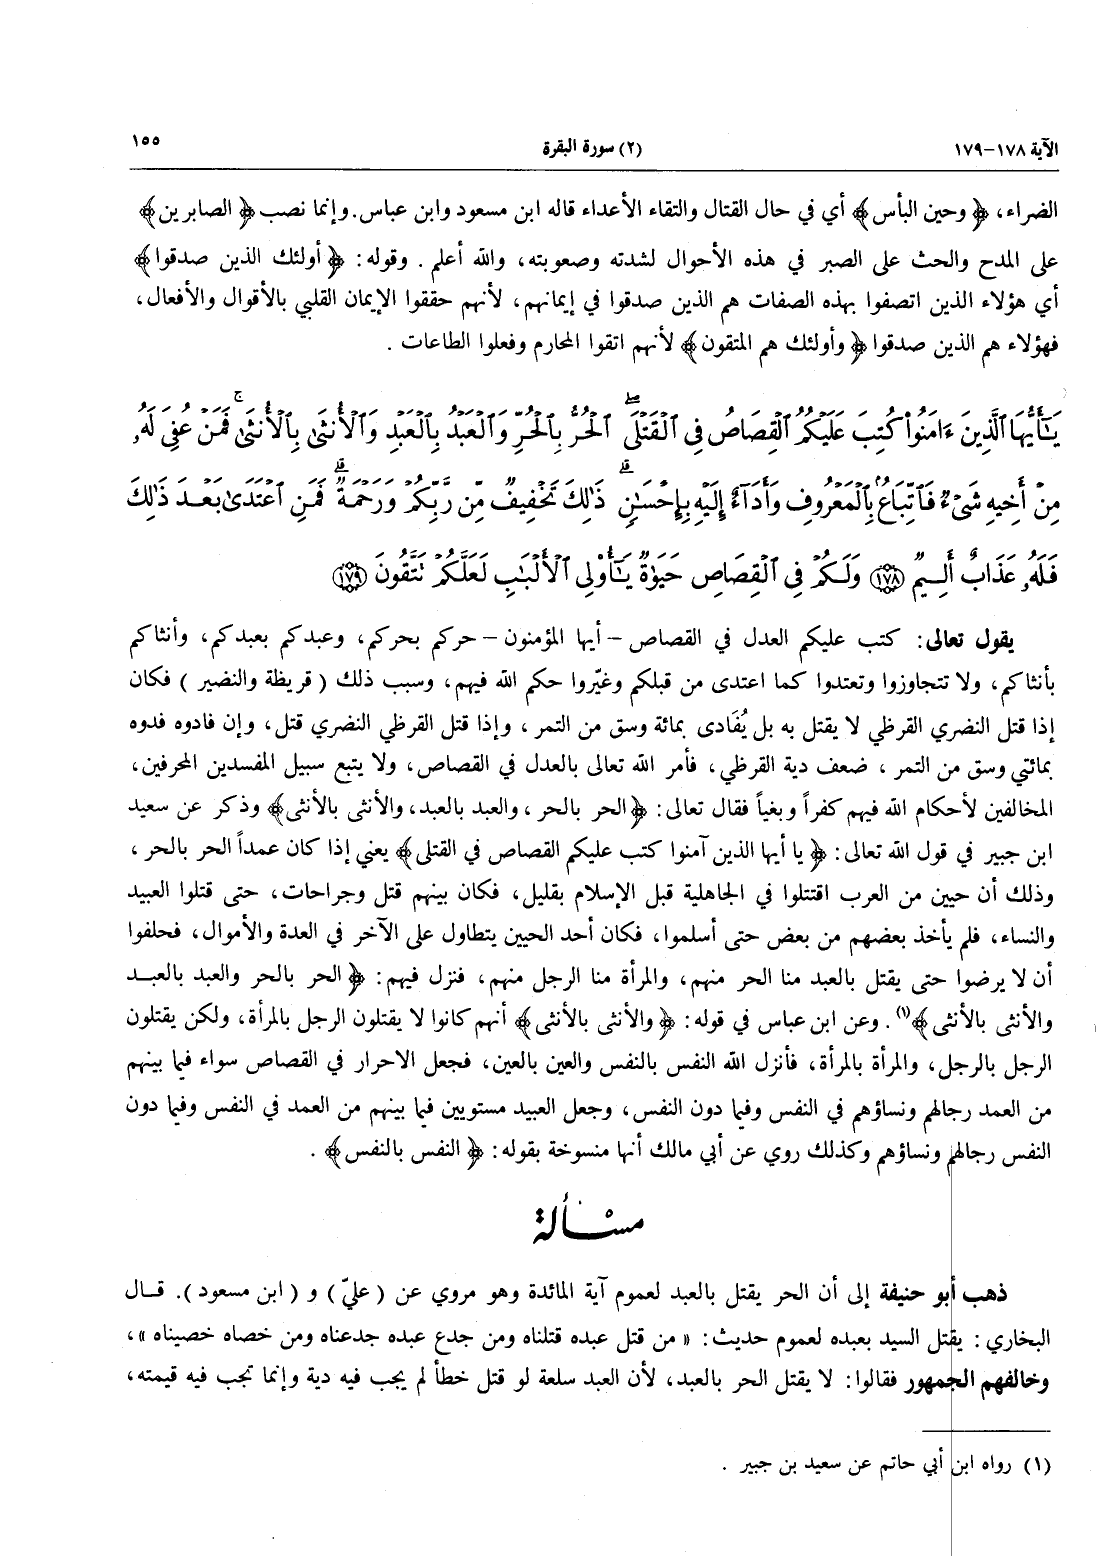 الآية ١٧٨-١٧٩ (٢) سورة البقرة ١٥٥
الضراء، ﴿ وحين البأس﴾ أي في حال القتال والتقاء الأعداء قاله ابن مسعود وابن عباس. وإنما نصب ﴿ الصابرين ﴾
على المدح والحث على الصبر في هذه الأحوال لشدته وصعوبته، والله أعلم . وقوله: ﴿ أولئك الذين صدقوا﴾
أي هؤلاء الذين اتصفوا بهذه الصفات هم الذين صدقوا في إيمانهم، لأنهم حققوا الإيمان القلبي بالأقوال والأفعال،
فهؤلاء هم الذين صدقوا ﴿ وأولئك هم المتقون﴾ لأنهم اتقوا المحارم وفعلوا الطاعات .
يَٰٓأَيُّهَا ٱلَّذِينَ ءَامَنُوا۟ كُتِبَ عَلَيْكُمُ ٱلْقِصَاصُ فِى ٱلْقَتْلَى ۖ ٱلْحُرُّ بِٱلْحُرِّ وَٱلْعَبْدُ بِٱلْعَبْدِ وَٱلْأُنثَىٰ بِٱلْأُنثَىٰ ۚ فَمَنْ عُفِىَ لَهُۥ
مِنْ أَخِيهِ شَىْءٌ فَٱتِّبَاعٌۢ بِٱلْمَعْرُوفِ وَأَدَآءٌ إِلَيْهِ بِإِحْسَٰنٍ ۗ ذَٰلِكَ تَخْفِيفٌ مِّن رَّبِّكُمْ وَرَحْمَةٌ ۗ فَمَنِ ٱعْتَدَىٰ بَعْدَ ذَٰلِكَ
فَلَهُۥ عَذَابٌ أَلِيمٌ ﴿١٧٨﴾ وَلَكُمْ فِى ٱلْقِصَاصِ حَيَوٰةٌ يَٰٓأُو۟لِى ٱلْأَلْبَٰبِ لَعَلَّكُمْ تَتَّقُونَ ﴿١٧٩﴾
يقول تعالى: كتب عليكم العدل في القصاص - أيها المؤمنون - حركم بحركم، وعبدكم بعبدكم، وأنثاكم
بأنثاكم، ولا تتجاوزوا وتعتدوا كما اعتدى من قبلكم وغيّروا حكم الله فيهم، وسبب ذلك ( قريظة والنضير ) فكان
إذا قتل النضري القرظي لا يقتل به بل يُفَادى بمائة وسق من التمر ، وإذا قتل القرظي النضري قتل، وإن فادوه فدوه
بمائتي وسق من التمر ، ضعف دية القرظي، فأمر الله تعالى بالعدل في القصاص، ولا يتبع سبيل المفسدين المحرفين،
المخالفين لأحكام الله فيهم كفراً وبغياً فقال تعالى: ﴿الحر بالحر ، والعبد بالعبد، والأنثى بالأنثى﴾ وذكر عن سعيد
ابن جبير في قول الله تعالى: ﴿ يا أيها الذين آمنوا كتب عليكم القصاص في القتلى﴾ يعني إذا كان عمداً الحر بالحر ،
وذلك أن حيين من العرب اقتتلوا في الجاهلية قبل الإسلام بقليل، فكان بينهم قتل وجراحات، حتى قتلوا العبيد
والنساء، فلم يأخذ بعضهم من بعض حتى أسلموا، فكان أحد الحيين يتطاول على الآخر في العدة والأموال، فحلفوا
أن لا يرضوا حتى يقتل بالعبد منا الحر منهم، والمرأة منا الرجل منهم، فنزل فيهم: ﴿ الحر بالحر والعبد بالعبـد
والأنثى بالأنثى﴾(١). وعن ابن عباس في قوله: ﴿ والأنثى بالأنثى﴾ أنهم كانوا لا يقتلون الرجل بالمرأة، ولكن يقتلون
الرجل بالرجل، والمرأة بالمرأة، فأنزل الله النفس بالنفس والعين بالعين، فجعل الاحرار في القصاص سواء فيما بينهم
من العمد رجالهم ونساؤهم في النفس وفيما دون النفس، وجعل العبيد مستويين فيما بينهم من العمد في النفس وفيما دون
النفس رجالهم ونساؤهم وكذلك روي عن أبي مالك أنها منسوخة بقوله: ﴿ النفس بالنفس﴾ .
مسألة
ذهب أبو حنيفة إلى أن الحر يقتل بالعبد لعموم آية المائدة وهو مروي عن ( عليّ ) و ( ابن مسعود ). قـال
البخاري : يقتل السيد بعبده لعموم حديث: « من قتل عبده قتلناه ومن جدع عبده جدعناه ومن خصاه خصيناه »،
وخالفهم الجمهور فقالوا: لا يقتل الحر بالعبد، لأن العبد سلعة لو قتل خطأ لم يجب فيه دية وإنما تجب فيه قيمته،
(١) رواه ابن أبي حاتم عن سعيد بن جبير .